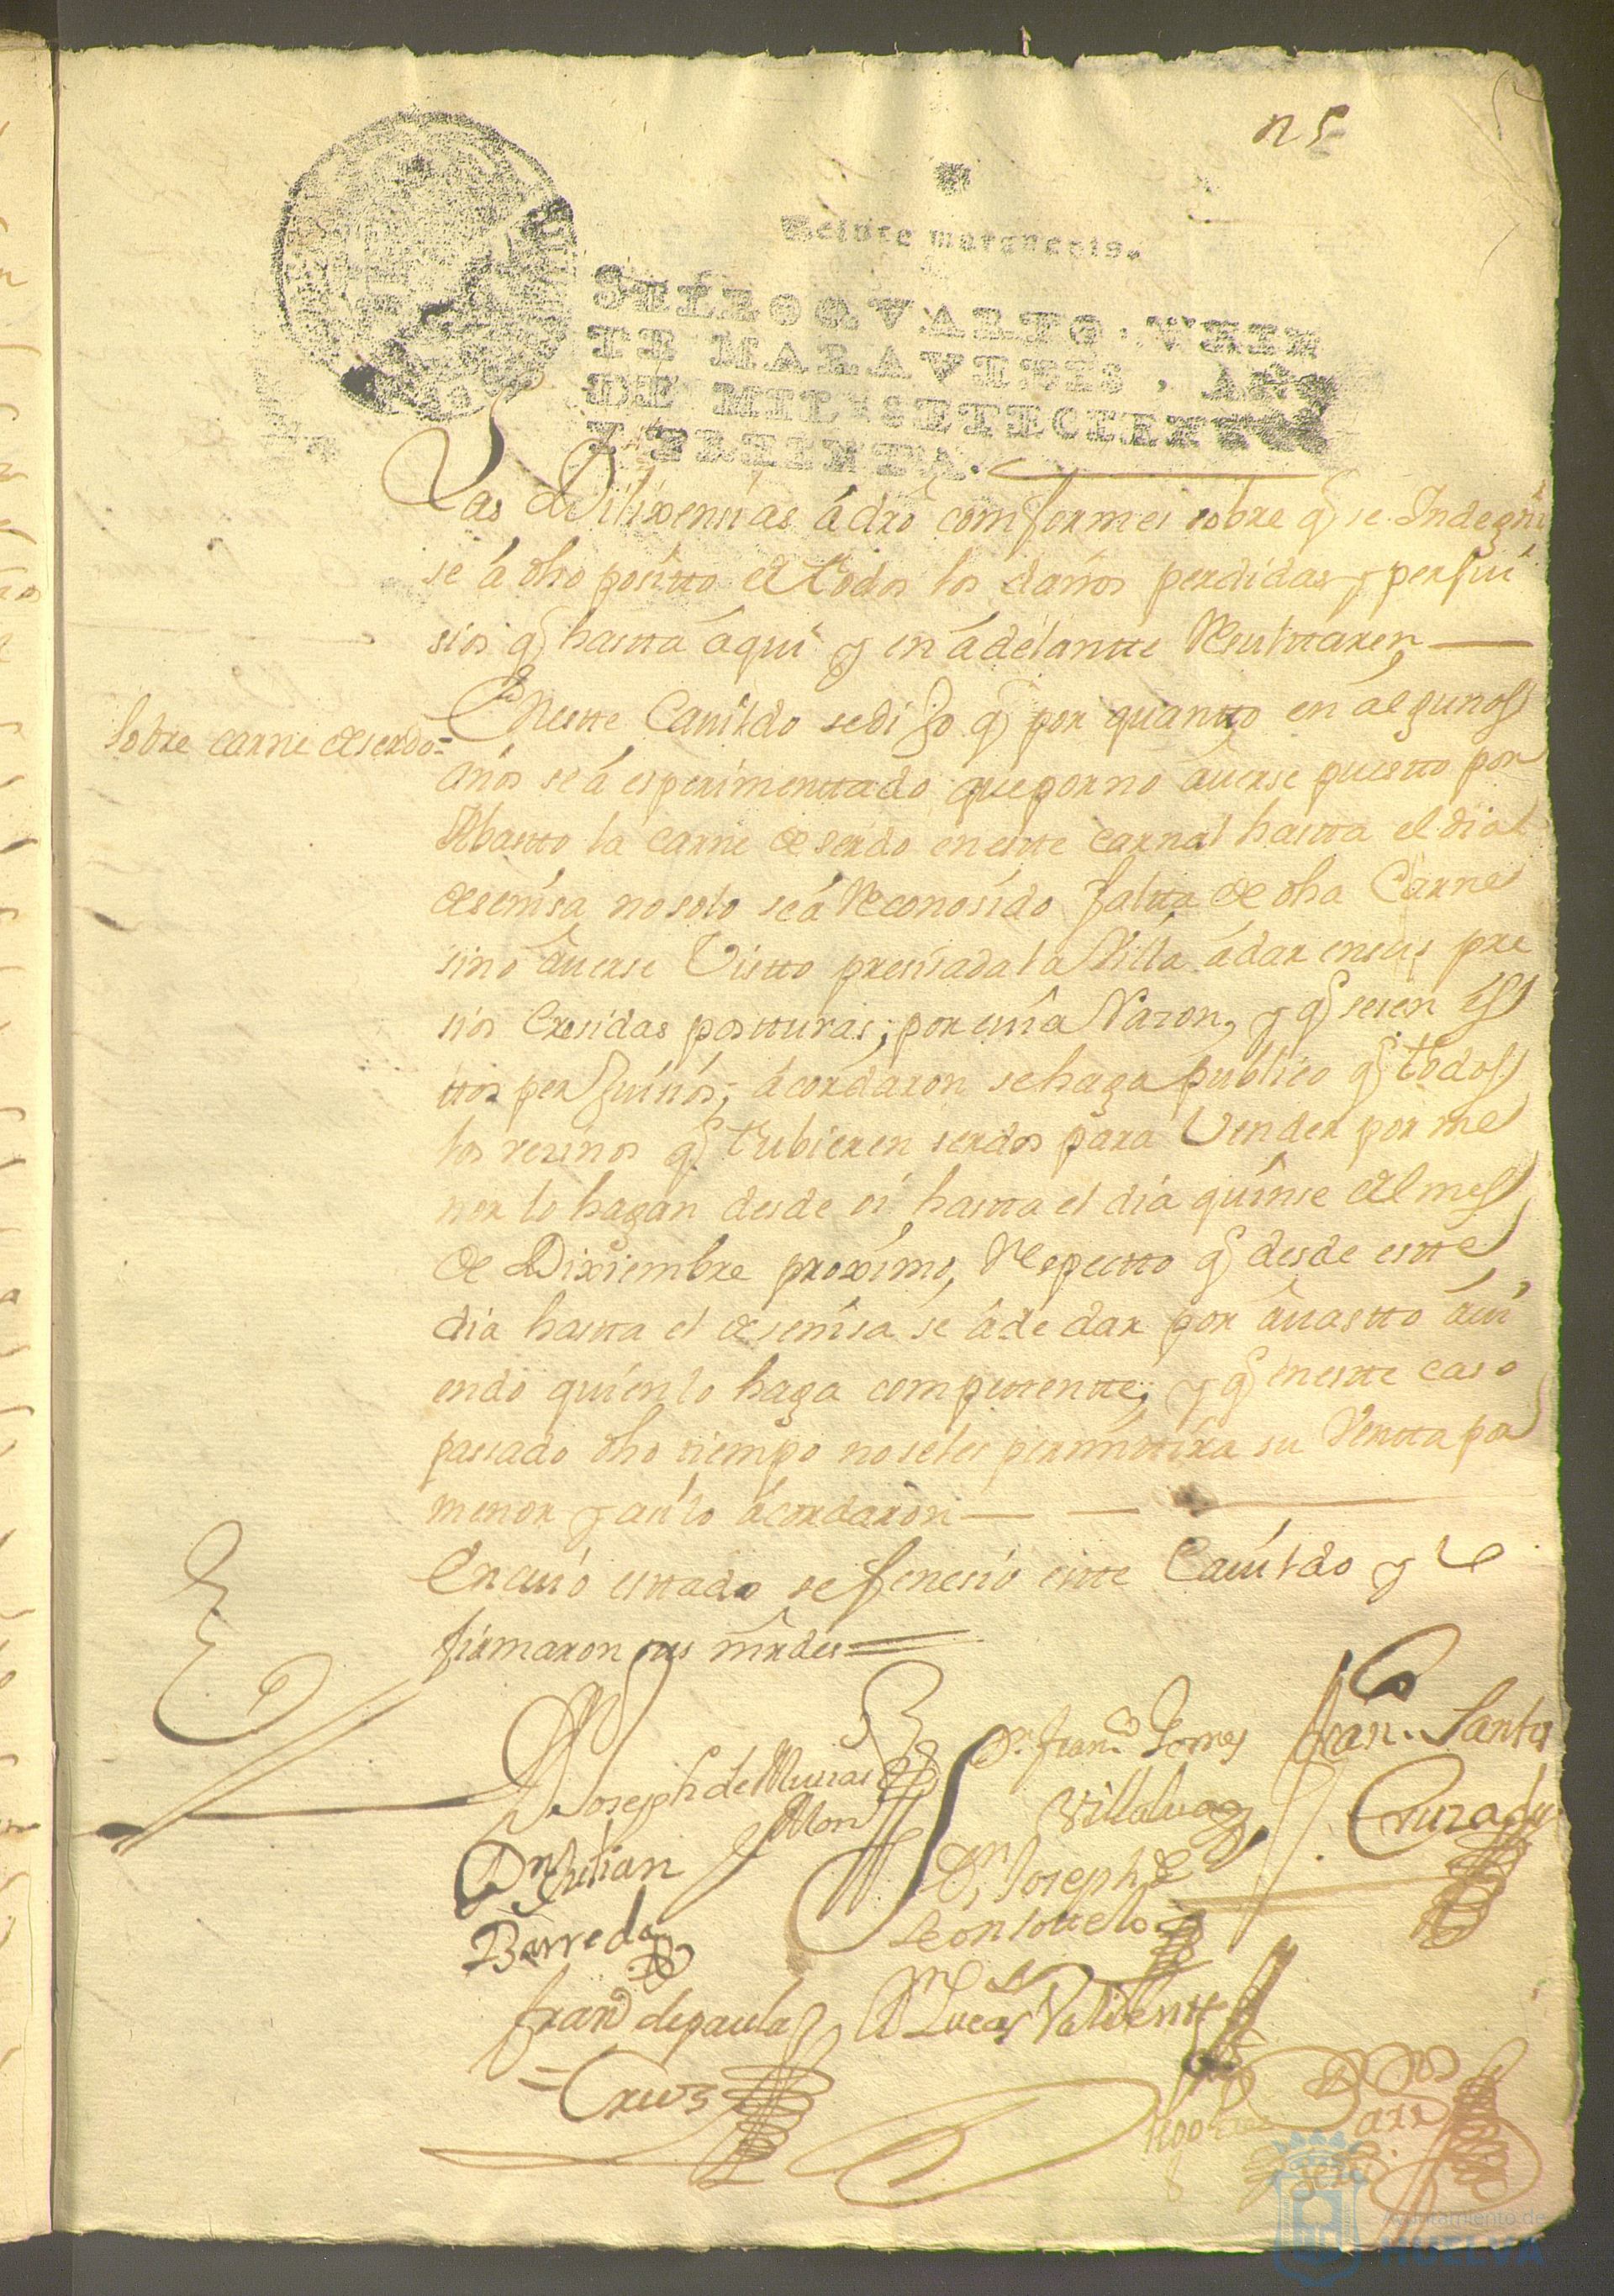 n 5
Veinte maravedis.
SELLO QVARTO, VEIN
TE MARAVEDIS, AÑO
DE MIL SETECIENTOS
Y TREINTA.
Las Dilixensias á dro comformes sobre q se Indegni
se á dho positto de todos los daños perdidas y perjui
sios q hastta áqui y en ádelantte Resulttaren
Sobre carne de serdo=
En estte Cavildo se dijo q por quantto en algunos
años se á esperimenttado que por no áverse puestto por
Abastto la carne de serdo en estte carnal hastta el dia
de senisa no solo se á Reconosido faltta de dha Carne
sino áverse Vistto presisada la Villa á dar en sus pre
sios Cresidas postturas; por cuia Razon, y q sesen es
ttos perjuisios; ácordaron se haga publico q todos
los vezinos q tubieren serdos para Vender por me
nor lo hagan desde oi hastta el dia quinse del mes
de Diziembre proximo, Respectto q desde estte
dia hastta el de senisa se á de dar por ávastto ávi
endo quien lo haga competentte; y q en estte caso
passado dho tiempo no se les permittira su Ventta por
menor y asi lo ácordaron
En cuio esttado se fenesio estte Cavildo y lo
firmaron sus mrdes=
Dn Joseph de
Dn Fran.co Gomes
Fran.co Santos
Villalva
Cruzado
Dn Julian
Dn Joseph de
Barreda
Leon sottelo
Fran.co de paula
Dn Lucas Valiente
=Cruz
Ayuntamiento de
HUELVA